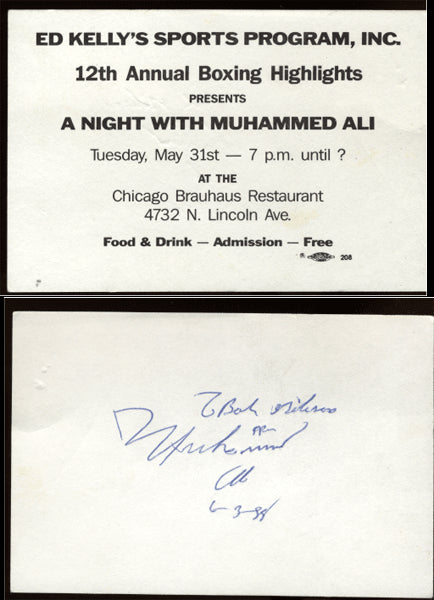 ED KELLY'S SPORTS PROGRAM, INC.
12th Annual Boxing Highlights
PRESENTS
A NIGHT WITH MUHAMMED ALI
Tuesday, May 31st — 7 p.m. until ?
AT THE
Chicago Brauhaus Restaurant
4732 N. Lincoln Ave.
Food & Drink — Admission — Free
208
To Bob
Muhammad
Ali
6-3-88